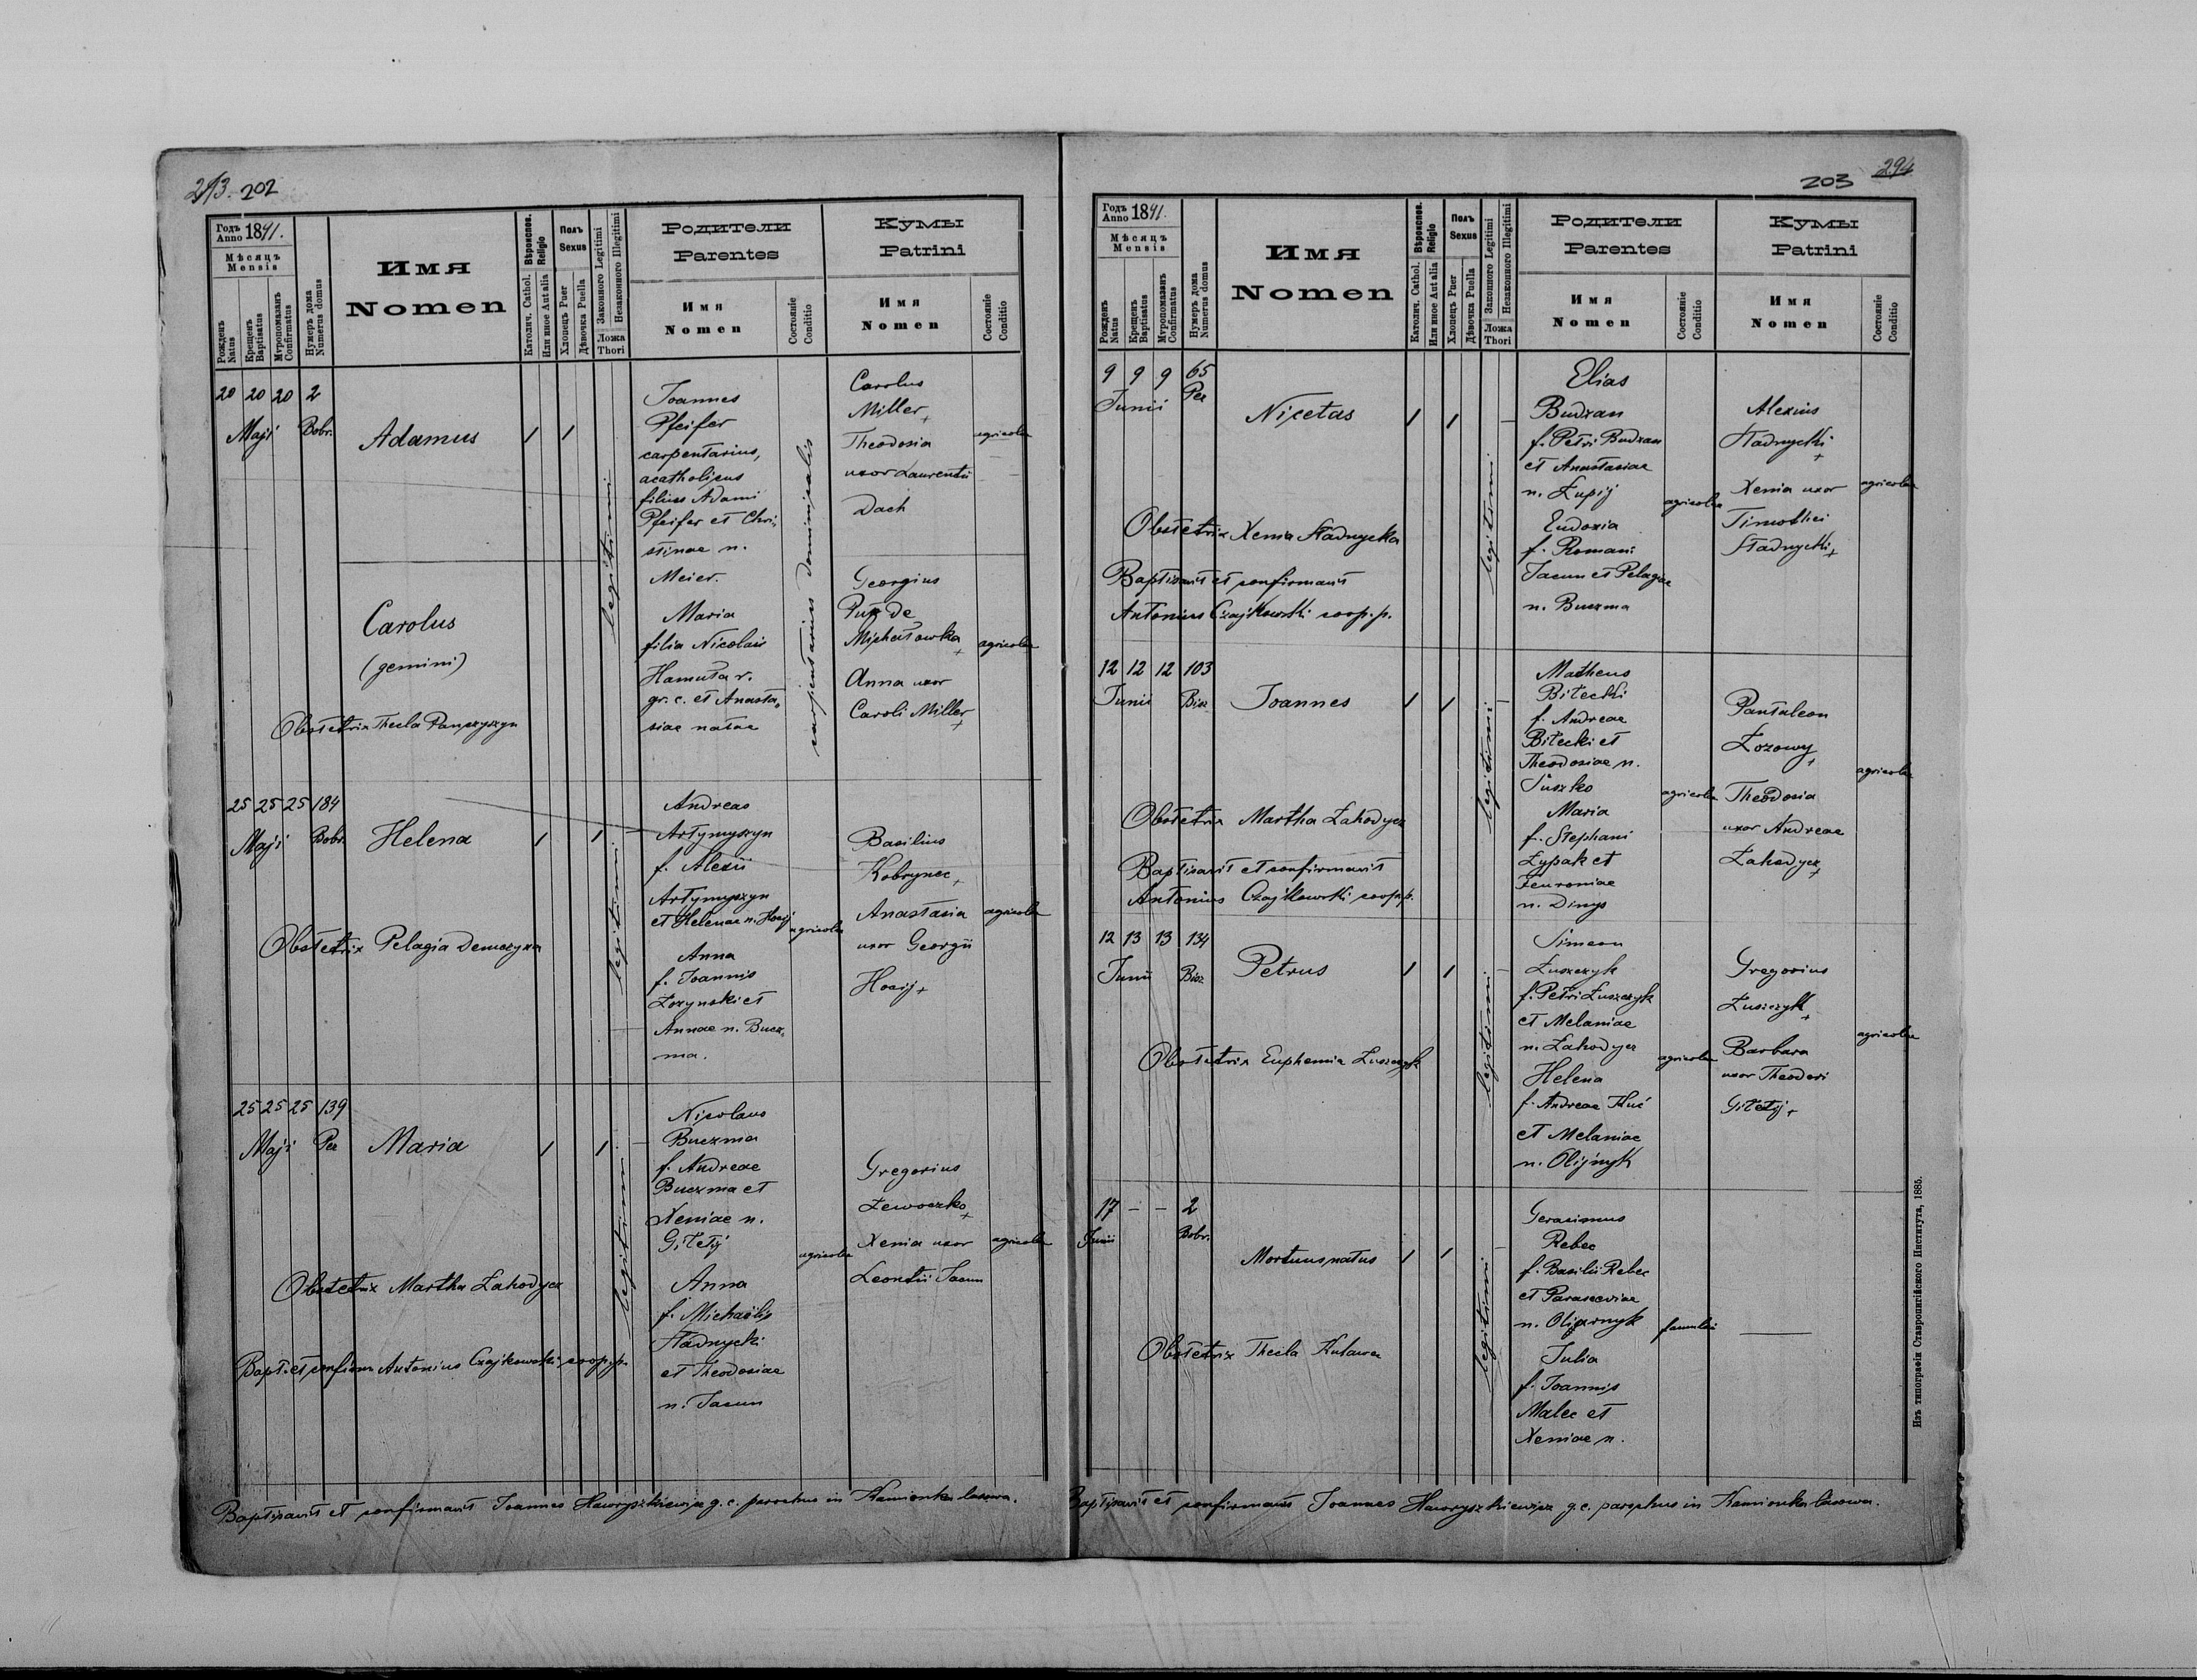 293. 202
Годъ Anno 1841.
Мѣсяцъ
Mensis
Рожденъ
Natus
Крещенъ
Baptisatus
Мѵропомазанъ
Confirmatus
Нумеръ дома
Numerus domus
Имя
Nomen
Вѣроиспов.
Religio
Католич. Cathol.
Или иное Aut alia
Полъ
Sexus
Хлопецъ Puer
Дѣвочка Puella
Законного Legitimi
Незаконного Illegitimi
Ложа
Thori
Родители
Parentes
Имя
Nomen
Состоянiе
Conditio
Кумы
Patrini
Имя
Nomen
Состоянiе
Conditio
20 20 20 2
Maji Bobr.
Adamus
legitimi
Joannes
Pfeifer
carpentarius,
acatholicus
filius Adami
Pfeifer et Chri-
stinae n.
Meier.
Maria
filia Nicolai
Hamuła r.
gr. c. et Anasta-
siae natae
carpentarius dominicalis
Carolus
Miller +
Theodosia
uxor Laurentii
Dach
agricolae
Carolus
(gemini)
Georgius
de
Michałowka +
Anna uxor
Caroli Miller +
agricolae
Obstetrix Thecla Panczyszyn
25 25 25 184
Maji Bobr.
Helena
legitimi
Andreas
Artymyszyn
f. Alexii
Artymyszyn
et Helenae n. Hocij
Anna
f. Joannis
Łozynski et
Annae n. Bucz-
ma.
agricolae
Basilius
Kobrynec +
Anastasia
uxor Georgii
Hocij +
agricolae
Obstetrix Pelagia Demczyna
25 25 25 139
Maji Per
Maria
legitimi
Nicolaus
Buczma
f. Andreae
Buczma et
Xeniae n.
Giletij
Anna
f. Michaëlis
Stadnycki
et Theodosiae
n. Jacun
agricolae
Gregorius
Lewoczko +
Xenia uxor
Leontii Jacun
agricolae
Obstetrix Martha Zahodycz
Bapt. et confirm Antonius Czajkowski coop. p.
Baptisavit et confirmavit Joannes Hawryszkiewicz g. c. parochus in Kamionka lasowa.
203 294
Годъ Anno 1841.
Мѣсяцъ
Mensis
Рожденъ
Natus
Крещенъ
Baptisatus
Мѵропомазанъ
Confirmatus
Нумеръ дома
Numerus domus
Имя
Nomen
Вѣроиспов.
Religio
Католич. Cathol.
Или иное Aut alia
Полъ
Sexus
Хлопецъ Puer
Дѣвочка Puella
Законного Legitimi
Незаконного Illegitimi
Ложа
Thori
Родители
Parentes
Имя
Nomen
Состоянiе
Conditio
Кумы
Patrini
Имя
Nomen
Состоянiе
Conditio
9 9 9 65
Junii Per
Nicetas
legitimi
Elias
Budzan
f. Petri Budzan
et Anastasiae
n. Łupij
Eudoxia
f. Romani
Jacun et Pelagiae
n. Buczma
agricolae
Alexius
Stadnycki +
Xenia uxor
Timothei
Stadnycki +
agricolae
Obstetrix Xenia Stadnycka
Baptisavit et confirmavit
Antonius Czajkowski coop. p.
12 12 12 103
Junii Bisz
Joannes
legitimi
Matheus
Bilecki
f. Andreae
Bilecki et
Theodosiae n.
Suszko
Maria
f. Stephani
Łypak et
Feuroniae
n. Dinys
agricolae
Pantaleon
Łozowy +
Theodosia
uxor Andreae
Zahodycz +
agricolae
Obstetrix Martha Zahodycz
Baptisavit et confirmavit
Antonius Czajkowski coop. p.
12 13 13 134
Junii Bisz
Petrus
legitimi
Simeon
Łuszczyk
f. Petri Łuszczyk
et Melaniae
n. Zahodycz
Helena
f. Andreae Kuć
et Melaniae
n. Olijnyk
agricolae
Gregorius
Łuszczyk +
Barbara
uxor Theodori
Giletij +
agricolae
Obstetrix Euphemia Łuszczyk
17 – – 2
Junii Bobr.
Mortuus natus
legitimi
Gerasimus
Rebec
f. Basilii Rebec
et Parasceviae
n. Olijarnyk
Julia
f. Joannis
Malec et
Xeniae n.
famuli
Obstetrix Thecla Kuława
Baptisavit et confirmavit Joannes Hawryszkiewicz g. c. parochus in Kamionka lasowa.
Изъ типографiи Ставропигiйского Института, 1885.